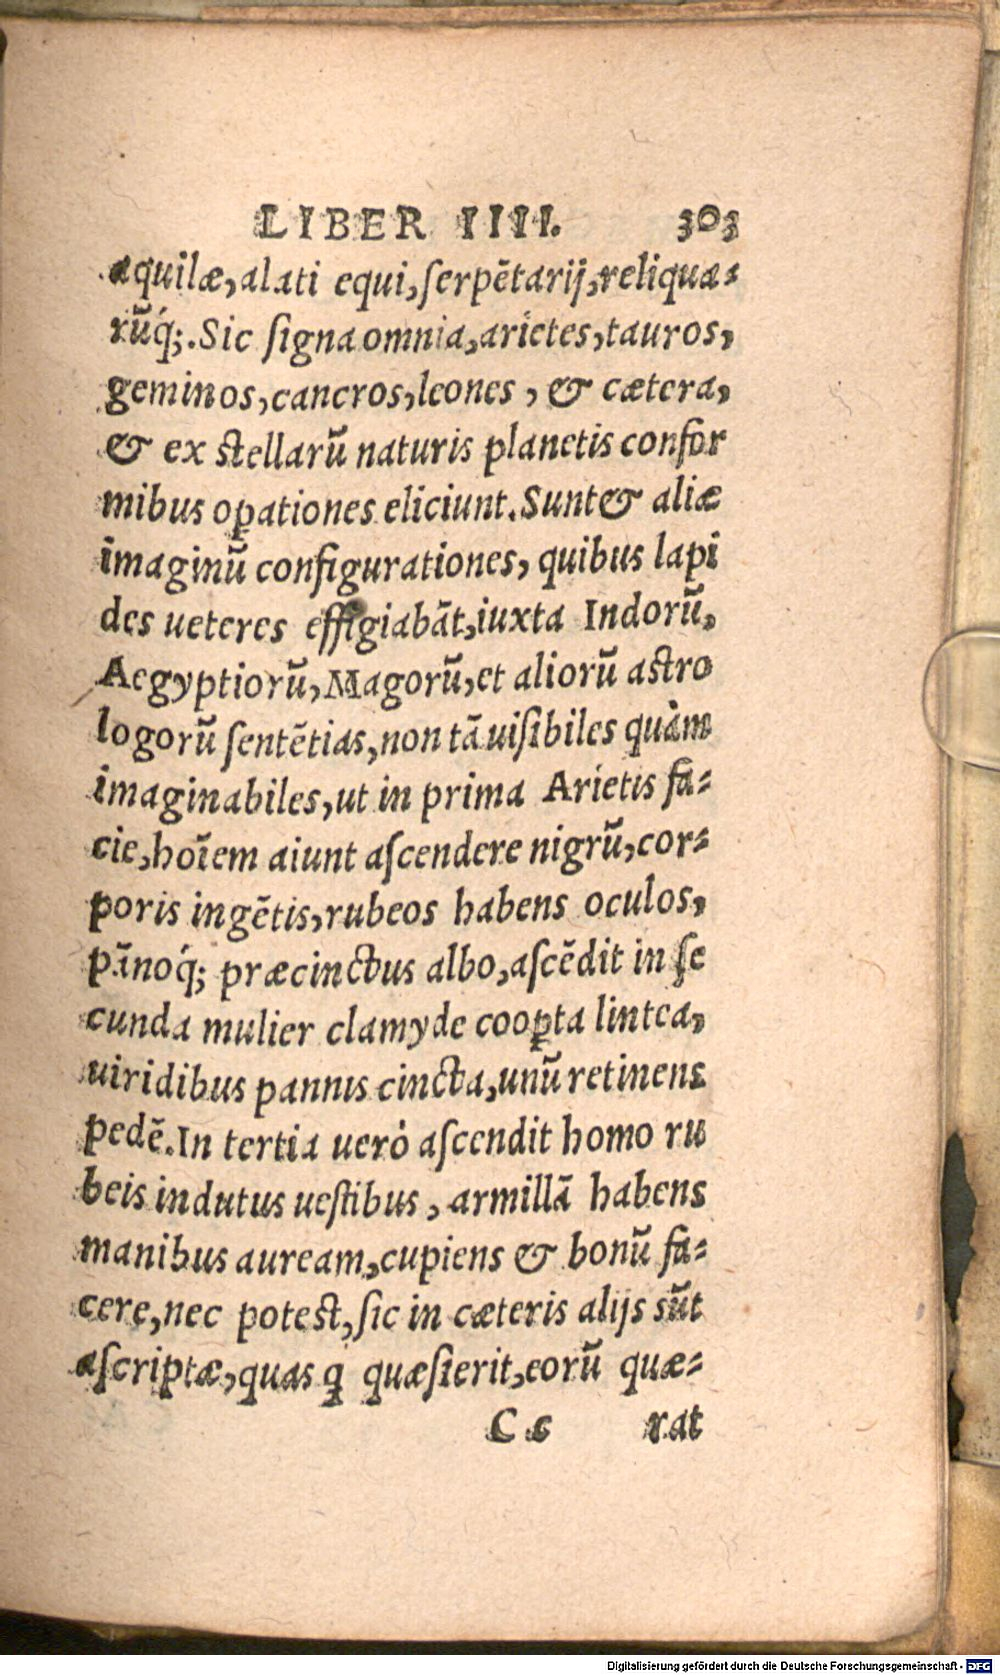 LIBER IIII. 303
aquilæ, alati equi, ſerpẽtarij, reliqua-
rũq́;. Sic ſigna omnia, arietes, tauros,
geminos, cancros, leones, & cætera,
& ex ſtellarũ naturis planetis confor
mibus oꝑationes eliciunt. Sunt & aliæ
imaginũ configurationes, quibus lapi
des ueteres effigiabãt, iuxta Indorũ,
Aegyptiorũ, Magorũ, et aliorũ aſtro
logorũ ſentẽtias, non tã uiſibiles quàm
imaginabiles, ut in prima Arietis fa-
cie, hoĩem aiunt aſcendere nigrũ, cor-
poris ingẽtis, rubeos habens oculos,
pãnoq́; præcinctus albo, aſcẽdit in ſe
cunda mulier clamyde cooꝑta lintea,
uiridibus pannis cincta, unũ retinens
pedẽ. In tertia uerò aſcendit homo ru
beis indutus ueſtibus, armillã habens
manibus auream, cupiens & bonũ fa-
cere, nec poteſt, ſic in cæteris alijs sũt
aſcriptæ, quas q̃ quæſierit, eorũ quæ-
C c rat
Digitalisierung gefördert durch die Deutsche Forschungsgemeinschaft - DFG